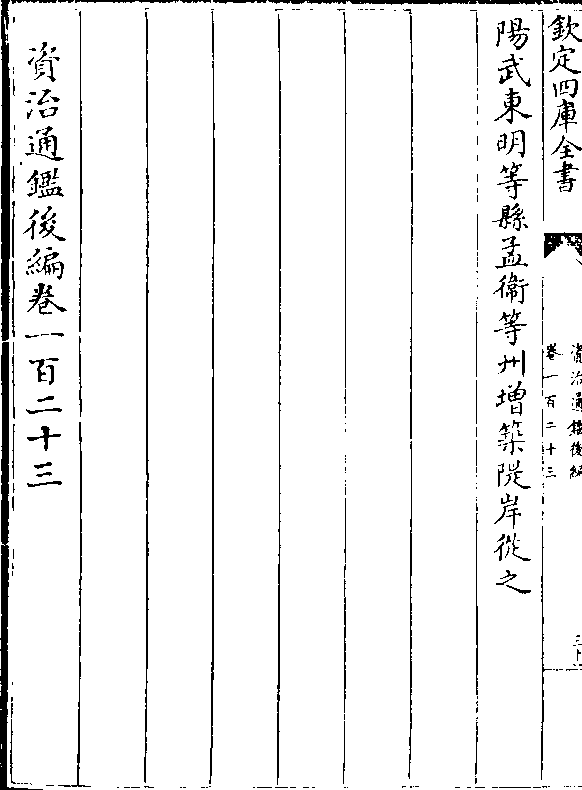 欽定四庫全書
資治通鑑後編
卷一百二十三
三十
陽武東明等縣孟衞等州增築隄岸從之
資治通鑑後編卷一百二十三